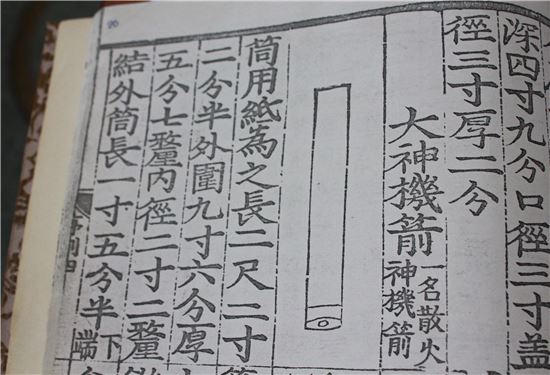 深四寸九分口徑三寸盖
徑三寸厚二分
大神機箭一名散火
神機箭
筒用紙為之長二尺二寸
二分半外圍九寸六分厚
五分七釐內徑二寸二釐
結外筒長一寸五分半下
端